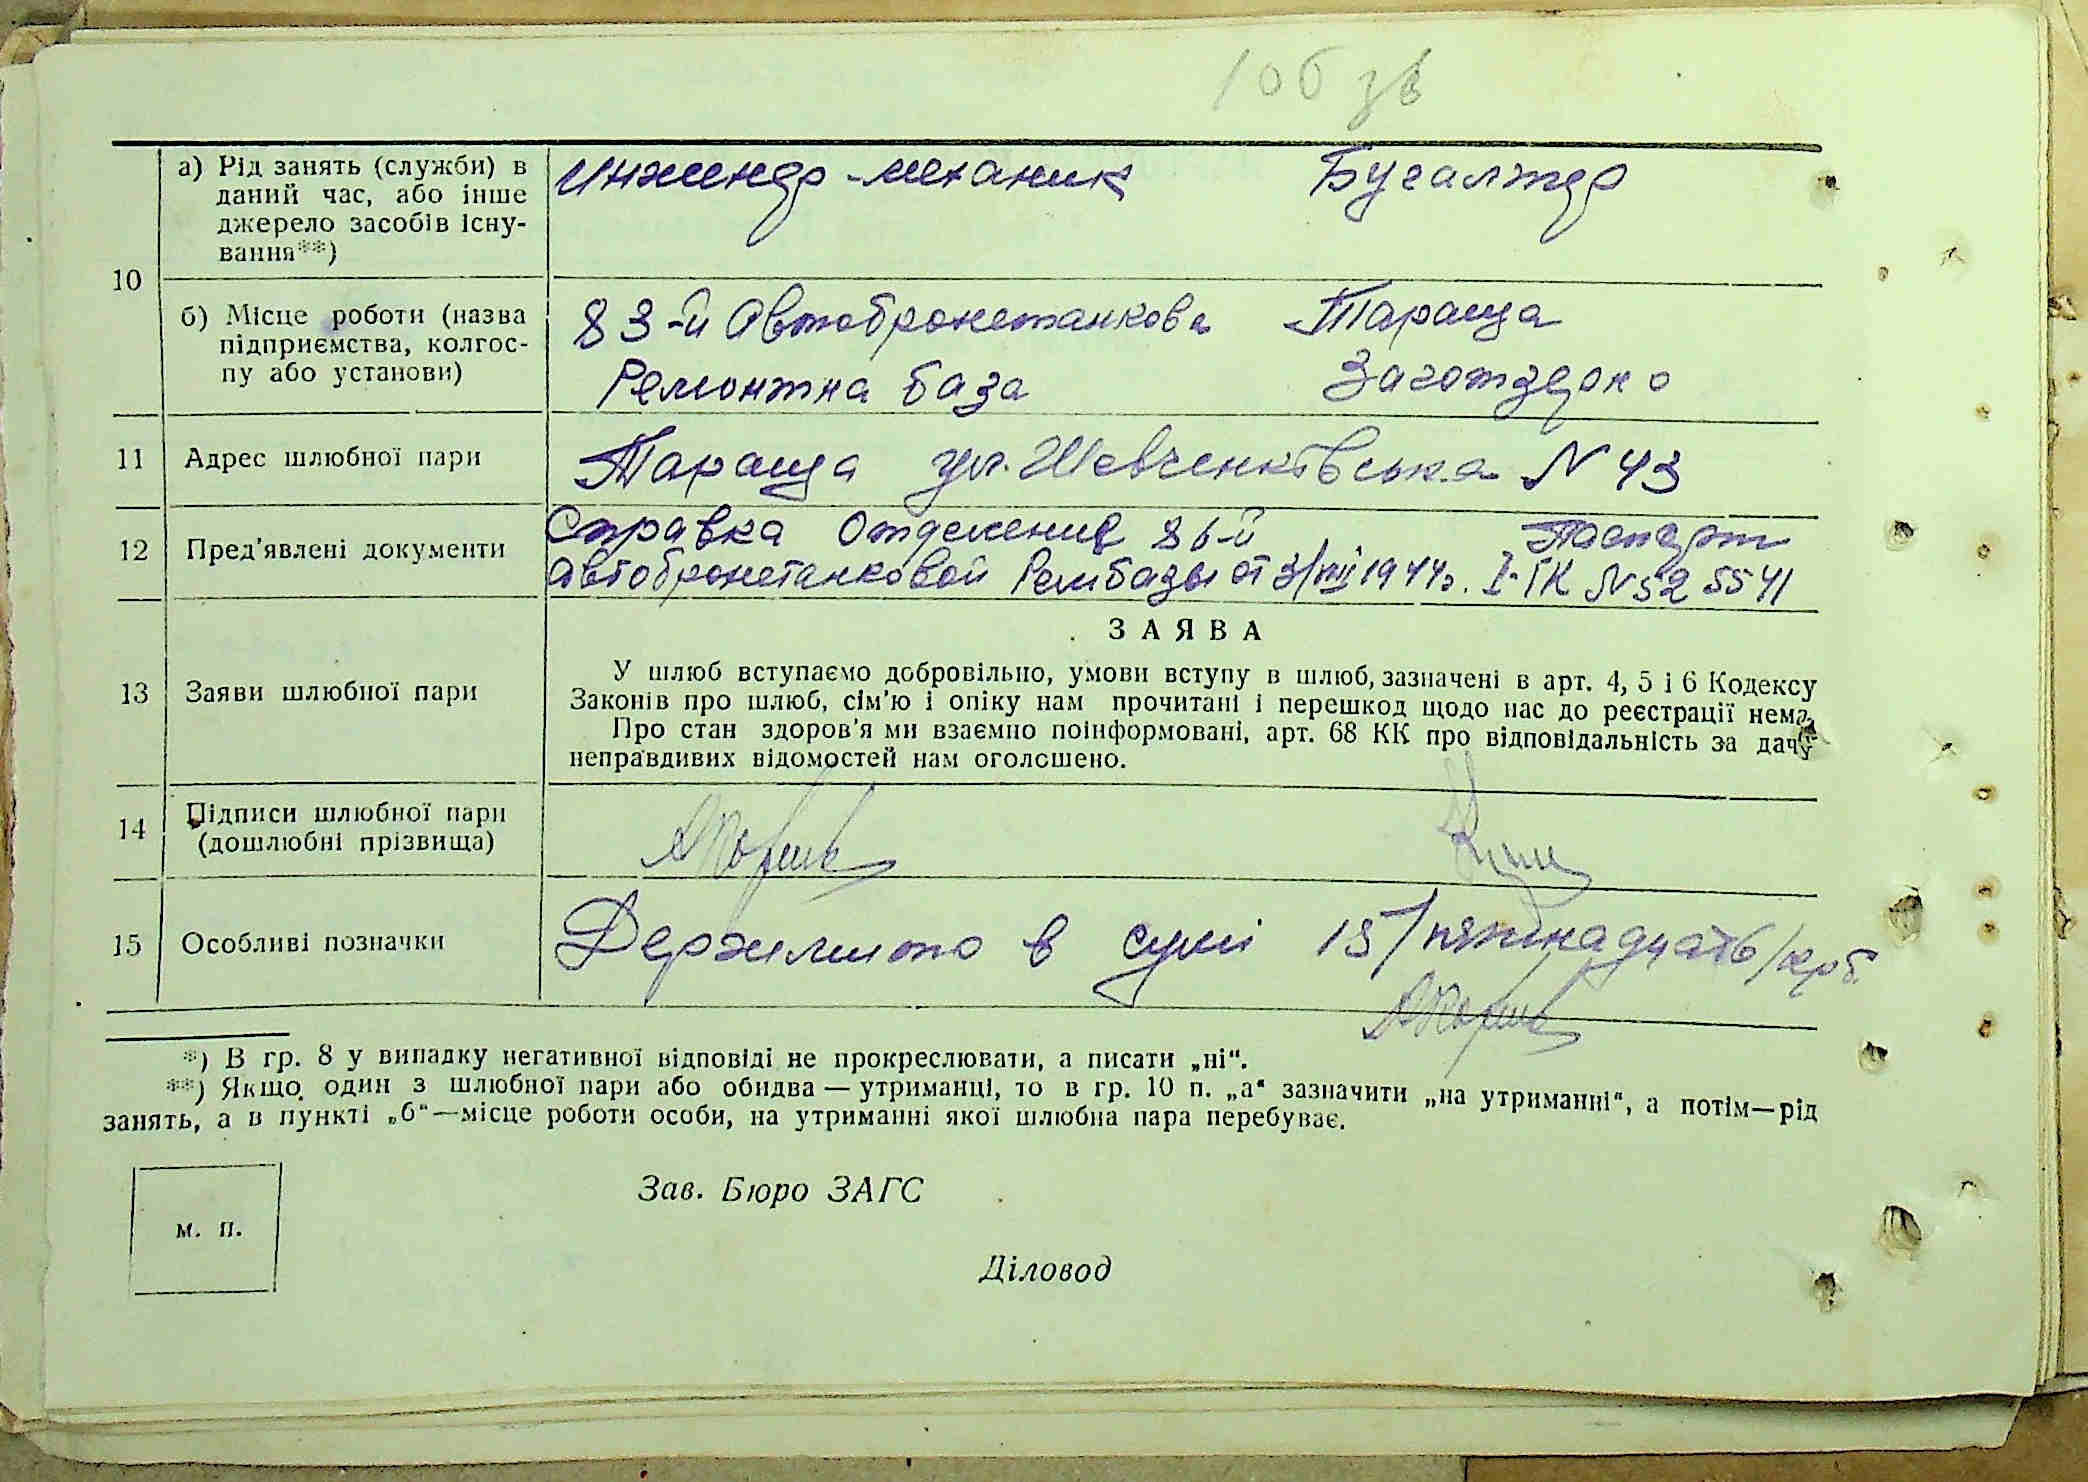 106 зв
10
а) Рід занять (служби) в
даний час, або інше
джерело засобів існу-
вання**)
Инженер-механик
Бугалтер
б) Місце роботи (назва
підприємства, колгос-
пу або установи)
83-й Автобронетанкова
Ремонтна база
Тараща
Заготзерно
11 Адрес шлюбної пари
Тараща ул. Шевченківська N 43
12 Пред'явлені документи
Справка Отделения 86-й
автобронетанковой Рембазы от 3/VIII 1944г.
Паспорт
I-ГК N 52 5541
13 Заяви шлюбної пари
ЗАЯВА
У шлюб вступаємо добровільно, умови вступу в шлюб, зазначені в арт. 4, 5 і 6 Кодексу
Законів про шлюб, сім'ю і опіку нам прочитані і перешкод щодо нас до реєстрації нема.
Про стан здоров'я ми взаємно поінформовані, арт. 68 КК про відповідальність за дачу
неправдивих відомостей нам оголошено.
14 Підписи шлюбної пари
(дошлюбні прізвища)
15 Особливі позначки
Держмито в сумі 15/пятнадцать/крб
*) В гр. 8 у випадку негативної відповіді не прокреслювати, а писати „ні“.
**) Якщо один з шлюбної пари або обидва — утриманці, то в гр. 10 п. „а“ зазначити „на утриманні“, а потім—рід
занять, а в пункті „б“—місце роботи особи, на утриманні якої шлюбна пара перебуває.
м. п.
Зав. Бюро ЗАГС
Діловод